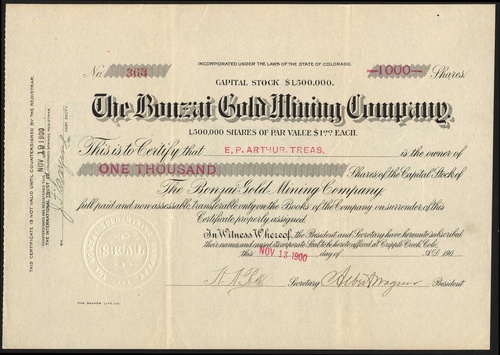 INCORPORATED UNDER THE LAWS OF THE STATE OF COLORADO.
No. 363
1000 Shares
CAPITAL STOCK $1,500,000.
The Bonzai Gold Mining Company
1,500,000 SHARES OF PAR VALUE $1.00 EACH.
This is to Certify that E. P. ARTHUR. TREAS. is the owner of
ONE THOUSAND Shares of the Capital Stock of
The Bonzai Gold Mining Company,
full paid and non assessable, transferable only on the Books of the Company on surrender of this
Certificate properly assigned.
In Witness Whereof, the President and Secretary have hereunto subscribed
their names and caused its corporate Seal to be hereto affixed at Cripple Creek, Colo.
this NOV 13 1900 day of A.D. 190
Secretary Albert Wagner President
SEAL
THIS CERTIFICATE IS NOT VALID UNTIL COUNTERSIGNED BY THE REGISTRAR.
NOV 19 1900
BY